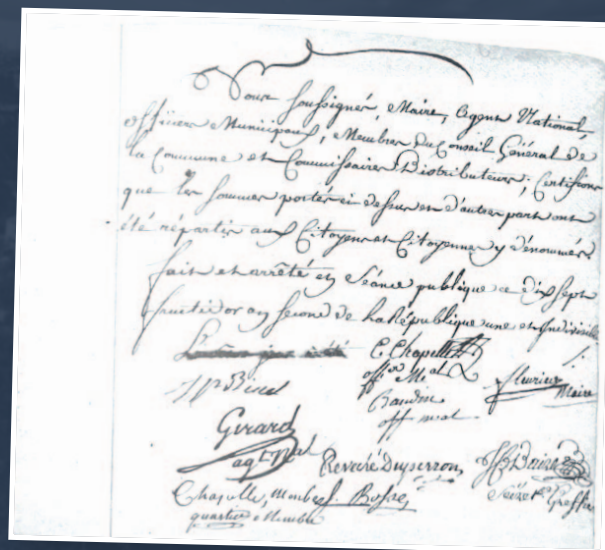 Nous soussignés, Maire, Agent National,
officiers Municipaux, Membres du Conseil Général de
la Commune et Commissaires Distributeurs; Certifions
que les sommes portés ci dessus et d'autre part ont
été répartis aux Citoyens et Citoyennes y dénommés
fait et arrêté en Séance publique ce dix sept
fructidor an second de la République une et Indivisible
C Chapelle
off er M al
Fleurieu
Maire
JP Biret
Baudin
off m al
Girard
agt Nal
Reveré Duperron
Chapelle, Membre
J. Bossre
quartier Membre
Greffier